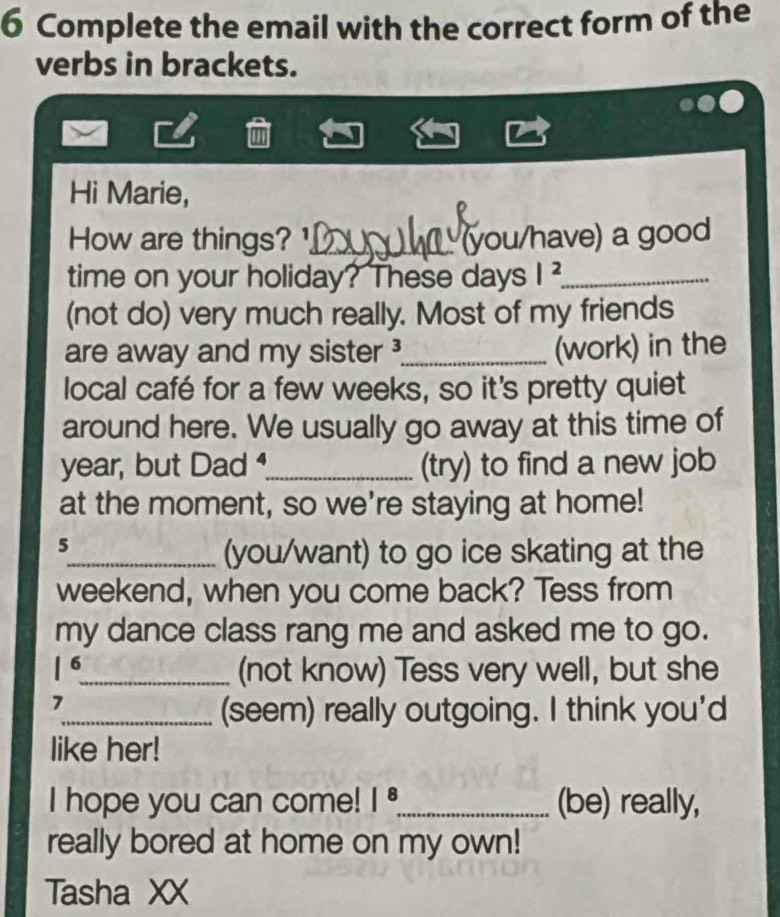 6 Complete the email with the correct form of the
verbs in brackets.
Hi Marie,
How are things? ¹Do you have (you/have) a good
time on your holiday? These days I ²
(not do) very much really. Most of my friends
are away and my sister ³ (work) in the
local café for a few weeks, so it's pretty quiet
around here. We usually go away at this time of
year, but Dad ⁴ (try) to find a new job
at the moment, so we're staying at home!
⁵ (you/want) to go ice skating at the
weekend, when you come back? Tess from
my dance class rang me and asked me to go.
I ⁶ (not know) Tess very well, but she
⁷ (seem) really outgoing. I think you'd
like her!
I hope you can come! I ⁸ (be) really,
really bored at home on my own!
Tasha XX